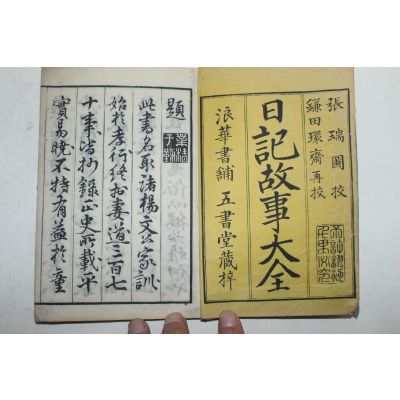 張瑞圖校
鎌田環齋再校
日記故事大全
浪華書舗 五書堂藏梓
題
此書名取諸楊文公家訓
始於孝行終於妻道三百七
十事皆抄錄正史所載平
實易曉不特有益於童